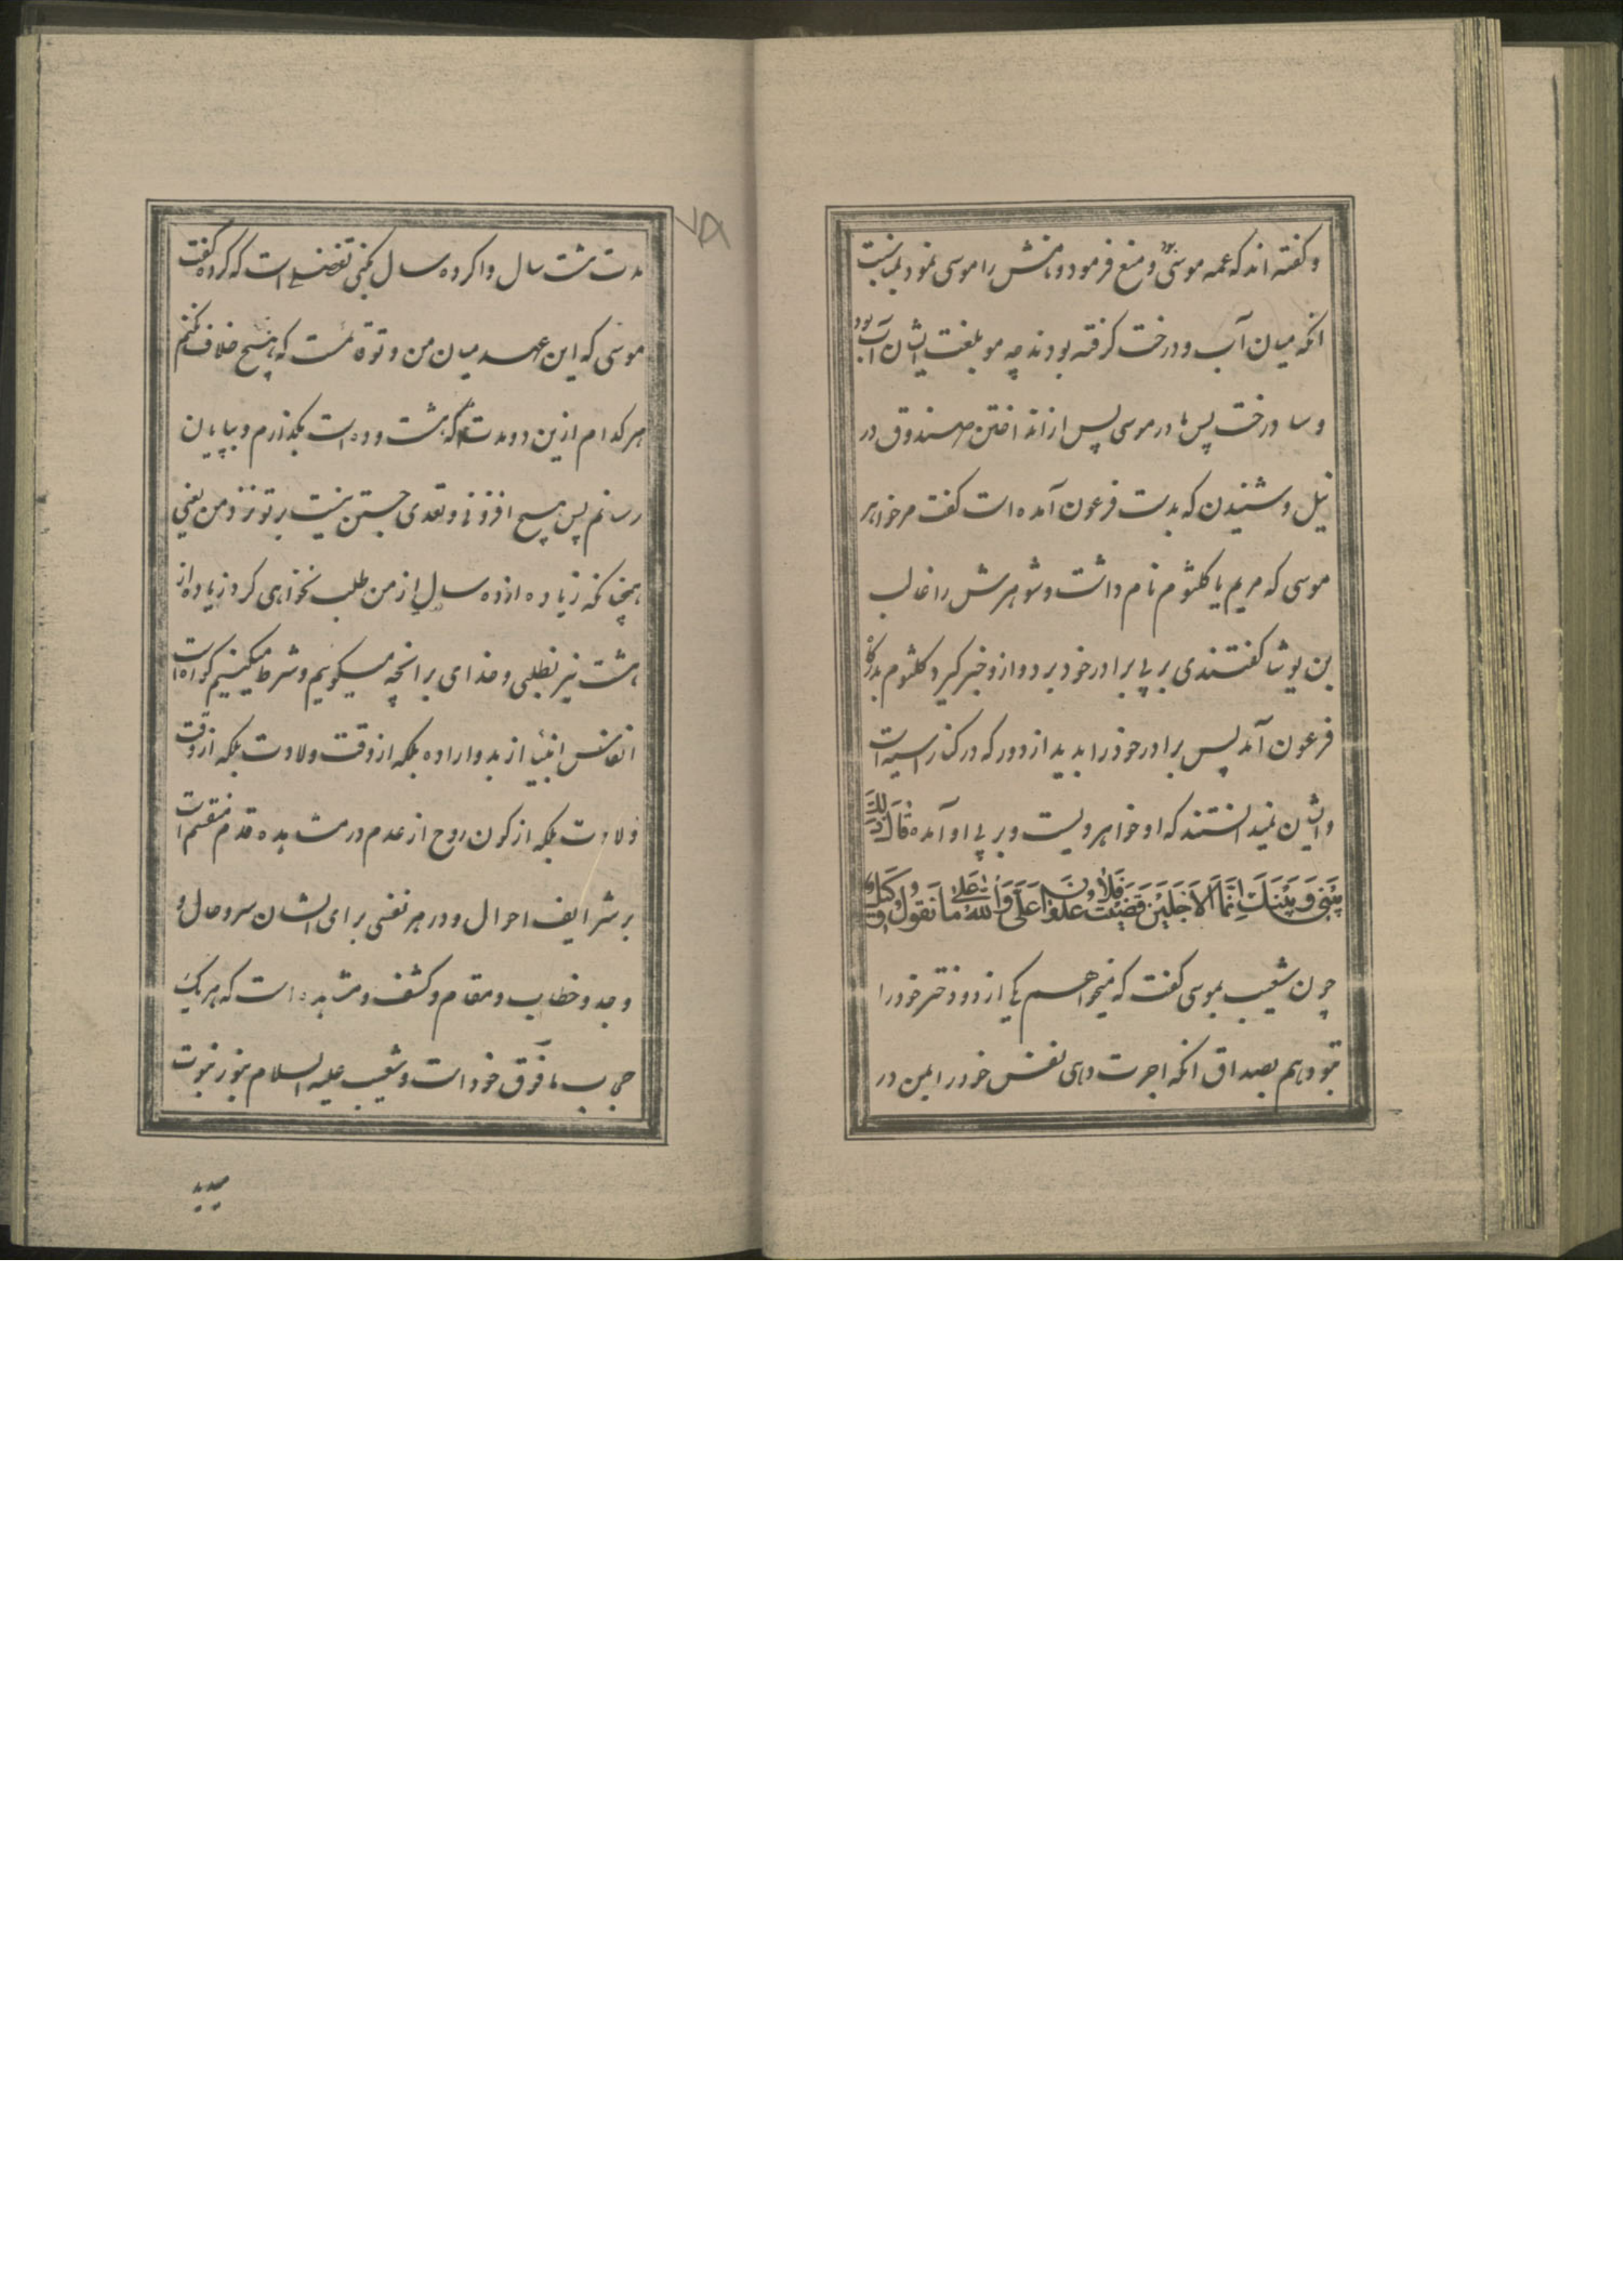 و گفته اند که عمه موسی بود و منع فرمود و نامش را موسی نمود بمناسبت
انکه میان آب و درخت گرفته بودند چه مو بلغت ایشان آب بود
و سا درخت پس مادر موسی پس از انداختن صندوق در
نیل و شنیدن که بدست فرعون آمده است گفت مر خواهر
موسی که مریم یا کلثوم نام داشت و شوهرش را غالب
بن یوشا گفتندی بر پی برادر خود برو و ازو خبر گیر و کلثوم بدرگاه
فرعون آمد پس برادر خود را بدید از دور که در کنار آسیه است
و ایشان نمیدانستند که او خواهر ویست و بر پی او آمده قَالَ ذَلِكَ
بَيْنِي وَبَيْنَكَ اَيَّمَا الْاَجَلَيْنِ قَضَيْتُ فَلَا عُدْوَانَ عَلَيَّ وَاللهُ عَلَى مَا نَقُولُ وَكِيلٌ
چون شعیب بموسی گفت که میخواهم یکی از دو دختر خود را
بتو دهم بصداق انکه اجرت دهی نفس خود را بمن در
٧٥
مدت هشت سال و اگر ده سال کنی تفضلی است که کرده گفت
موسی که این عهد میان من و تو قائمست که هیچ خلاف نکنم
هر کدام ازین دو مدت را که هشت و ده است بگذارم و بپایان
رسانم پس هیچ افزونی و تعدی جستن نیست بر تو نزد من یعنی
همچنانکه زیاده از ده سال از من طلب نخواهی کرد زیاده از
هشت نیز نطلبی و خدای بر انچه میگویم و شرط میکنیم گواه است
انفاس انبیا از بدو اراده بلکه از وقت ولادت بلکه از وقت
ولادت بلکه از کون روح از عدم در مشاهده قدم منقسم است
بر شرایف احوال و در هر نفسی برای ایشان سر و حال و
وجد و خطاب و مقام و کشف و مشاهده است که هر یک
حجاب مافوق خود است و شعیب علیه السلام بنور نبوت
میدید